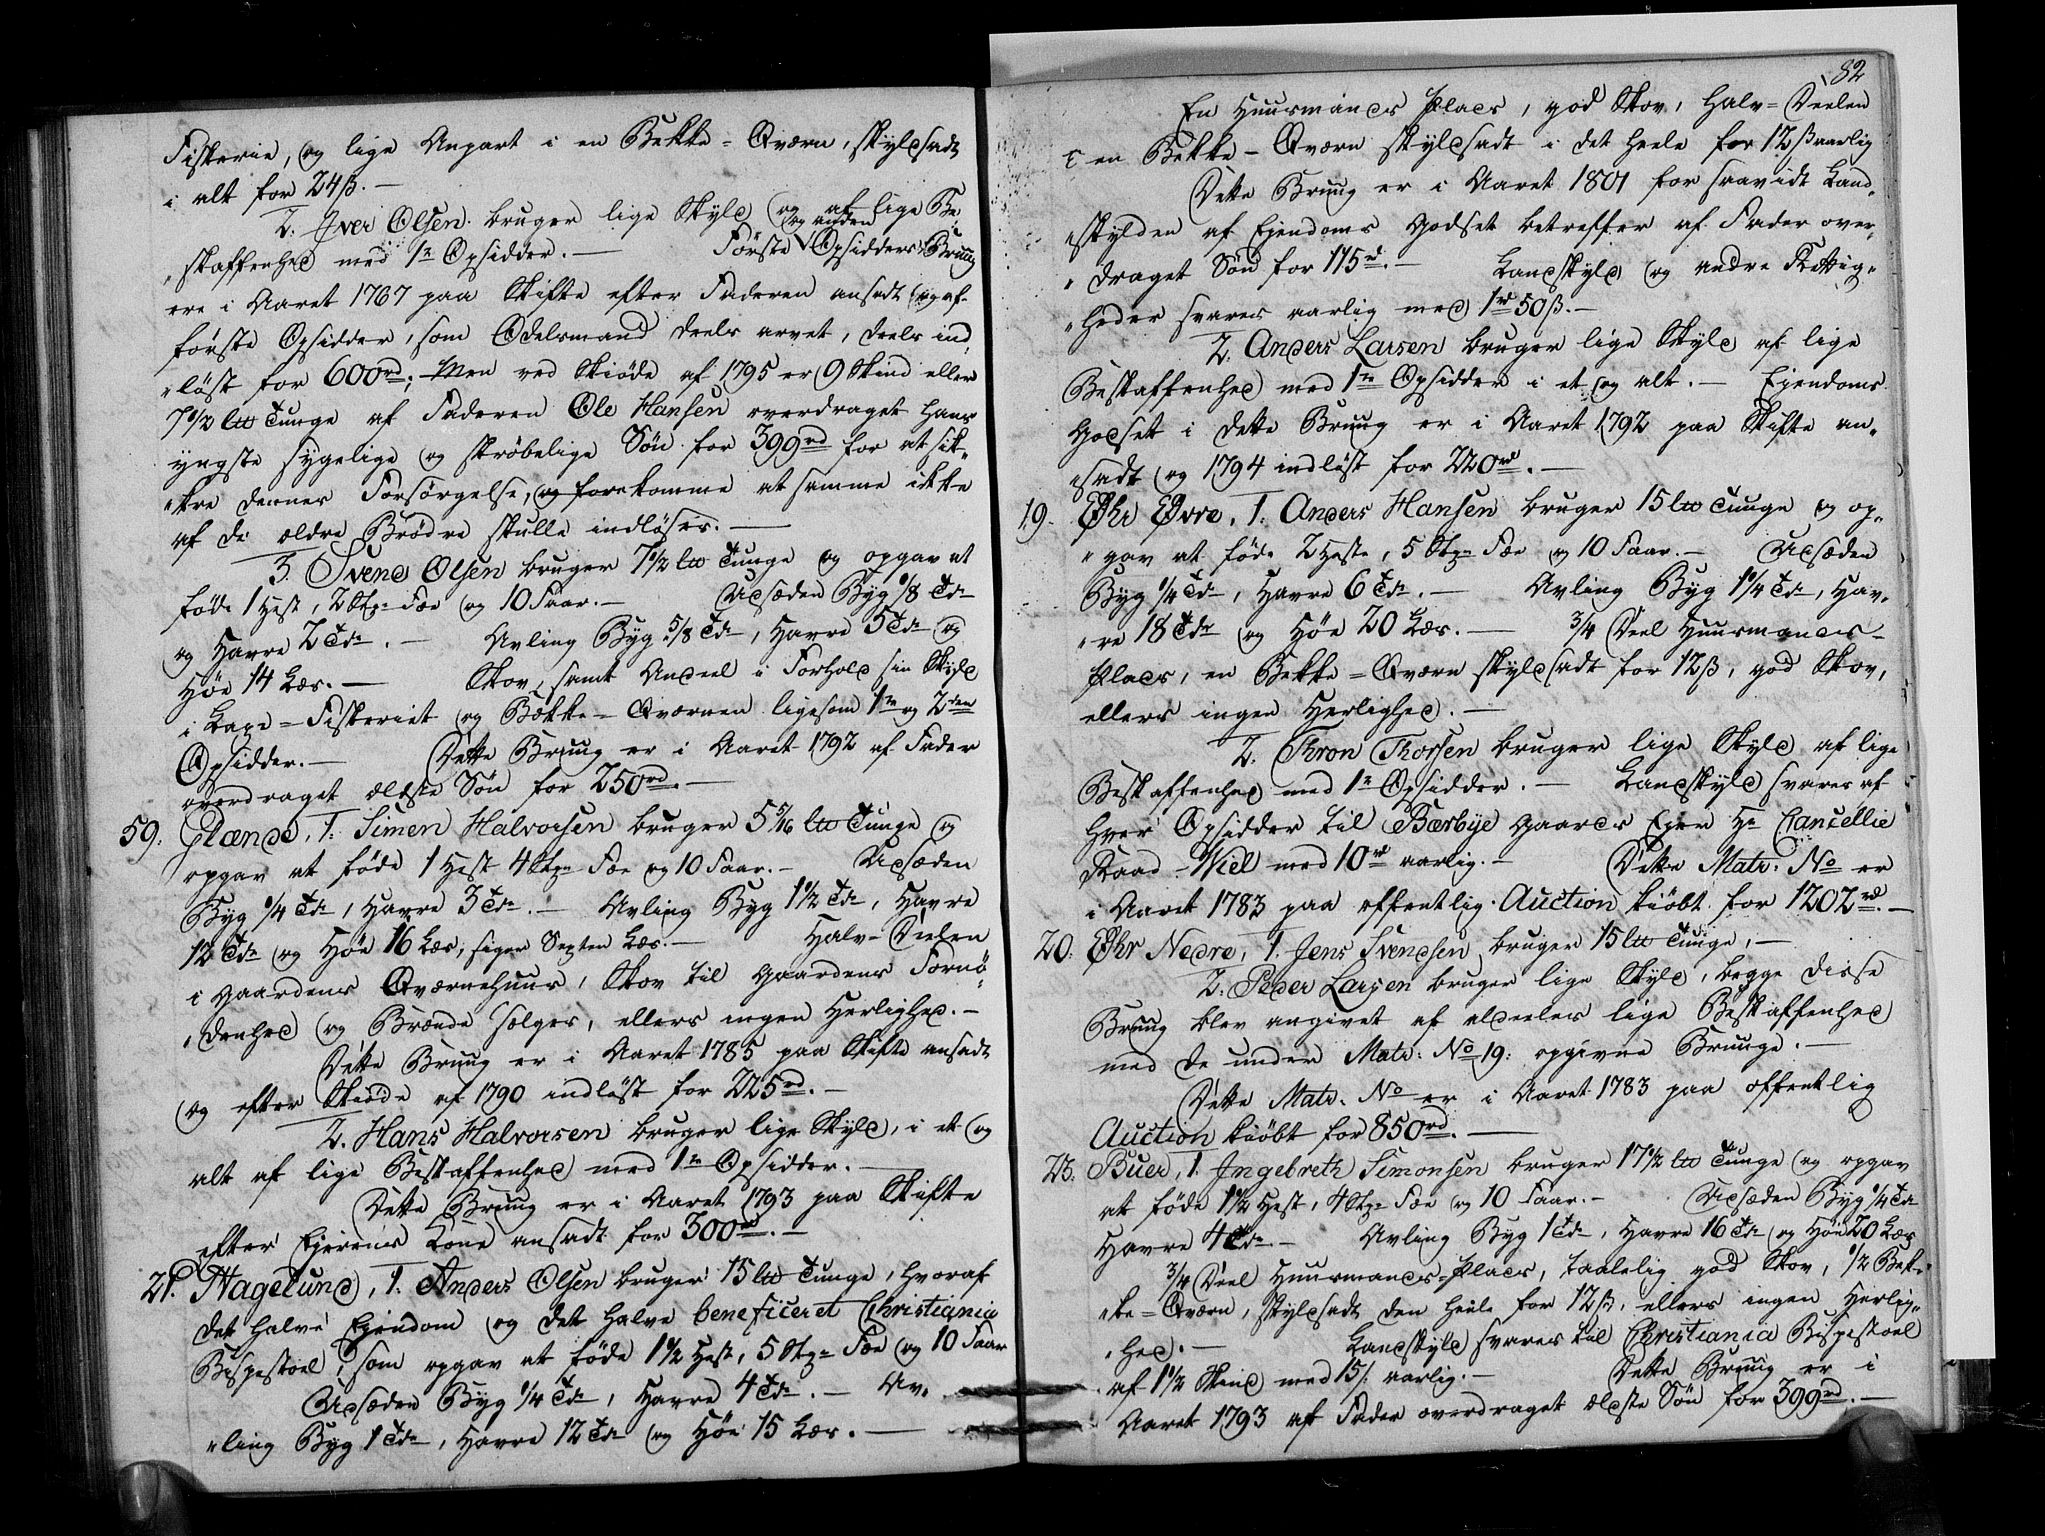 Fiskerie, og lige Anpart i en Bekke-Qværn, skyldsadt
i alt for 24ß.—
2. Iver Olsen bruger lige Skyld og af lige Be
„skaffenhed med 1n Opsidder.— Første og anden Opsidders Bruug
ere i Aaret 1767 paa Skifte efter Faderen ansadt og af
første Opsidder, som Odelsmand deels arvet, deels ind„
„løst for 600rd; Men ved Skiøde af 1795 er 9 Skind eller
7½ lb Tunge af Faderen Ole Hansen overdraget hans
yngste sygelige og skrøbelige Søn for 399rd for at sik„
„kre dennes Forsørgelse, og forekomme at samme ikke
af de ældre Brødre skulle indløses.—
3. Svend Olsen bruger 7½ lb Tunge og opgav at
føde 1 Hest, 2 Stkr Fæ og 10 Faar.— Udsæden Byg 1/8 Tde
og Havre 2 Tde.— Avling Byg 5/8 Tde, Havre 5 Tde og
Høe 14 Læs.— Skov, samt Andeel i Forhold sin Skyld
i Laxe-Fiskeriet og Bække-Qværnen ligesom 1te og 2den
Opsidder.— Dette Bruug er i Aaret 1792 af Fader
overdraget ældste Søn for 250rd.—
59. Glænde, 1. Simen Halvorsen bruger 5 5/16 lb Tunge og
opgav at føde 1 Hest 4 Stkr Fæ og 10 Faar.— Udsæden
Byg 1/4 Tde, Havre 3 Tde.— Avling Byg 1½ Tde, Havre
12 Tde og Høe 16 Læs, siger Sexten Læs.— Halv-Deelen
i Gaardens Qværnehuus, Skov til Gaardens Fornø„
„denhed og Brænde sælges, ellers ingen Herlighed.—
Dette Bruug er i Aaret 1785 paa Skifte ansadt
og efter Skiøde af 1790 indløst for 225rd.—
2. Hans Halvorsen bruger lige Skyld, i et og
alt af lige Beskaffenhed med 1te Opsidder.—
Dette Bruug er i Aaret 1793 paa Skifte
efter Ejerens Kone ansadt for 300rd.—
21. Hagelund, 1. Anders Olsen bruger 15 lb Tunge, hvoraf
det halve Ejendom og det halve beneficeret Christiania
Bispestoel, som opgav at føde 1½ Hest, 5 Stkr Fæ og 10 Faar
Udsæden Byg 1/4 Tde, Havre 4 Tde.— Av„
„ling Byg 1 Tde, Havre 12 Tde og Høe 15 Læs.—
82
En Huusmands Plads, god Skov, Halv-Deelen
i en Bekke-Qværn skyldsadt i det heele for 12ß aarlig
Dette Bruug er i Aaret 1801 for saavidt Land„
„skylden af Ejendoms Godset betreffer af Fader over„
„draget Søn for 115rd.— Landskyld og andre Rettig„
„heder svares aarlig med 1rd 50ß.—
2. Anders Larsen bruger lige Skyld af lige
Beskaffenhed med 1te Opsidder i et og alt.— Ejendoms
Godset i dette Bruug er i Aaret 1792 paa Skifte an„
„sadt og 1794 indløst for 220rd.—
19. Øhr Øvre, 1. Anders Hansen bruger 15 lb Tunge og op„
„gav at føde 2 Heste, 5 Stkr Fæ og 10 Faar.— Udsæden
Byg 1/4 Tde, Havre 6 Tde.— Avling Byg 1¼ Tde, Hav„
„re 18 Tde og Høe 20 Læs.— 3/4 Deel Huusmands-
Plads, en Bekke-Qværn skyldsadt for 12ß, god Skov,
ellers ingen Herlighed.—
2. Thron Thorsen bruger lige Skyld af lige
Beskaffenhed med 1te Opsidder.— Landskyld svares af
hver Opsidder til Bærbye Gaards Ejer Hr Cancellie
Raad Wiel med 10rd aarlig.— Dette Matr. No er
i Aaret 1783 paa offentlig Auction kiøbt for 1202rd.—
20. Øhr Nedre, 1. Jens Svendsen bruger 15 lb Tunge,—
2. Peder Larsen bruger lige Skyld, begge disse
Bruug blev angivet af aldeeles lige Beskaffenhed
med de under Matr. No 19. opgivne Bruuge.—
Dette Matr. No er i Aaret 1783 paa offentlig
Auction kiøbt for 850rd.—
23. Buer, 1. Ingebreth Simonsen bruger 17½ lb Tunge og opgav
at føde 1½ Hest, 4 Stkr Fæ og 10 Faar.— Udsæden Byg 1/4 Tde
Havre 4 Tde.— Avling Byg 1 Tde, Havre 16 Tde og Høe 20 Læs
3/4 Deel Huusmands-Plads, taalelig god Skov, 1/2 Bek„
„ke-Qværn, skyldsadt den heele for 12ß, ellers ingen Herlig„
„hed.— Landskyld svares til Christiania Bispestoel
af 1½ Skind med 15ß. aarlig.— Dette Bruug er i
Aaret 1793 af Fader overdraget ældste Søn for 399rd.—